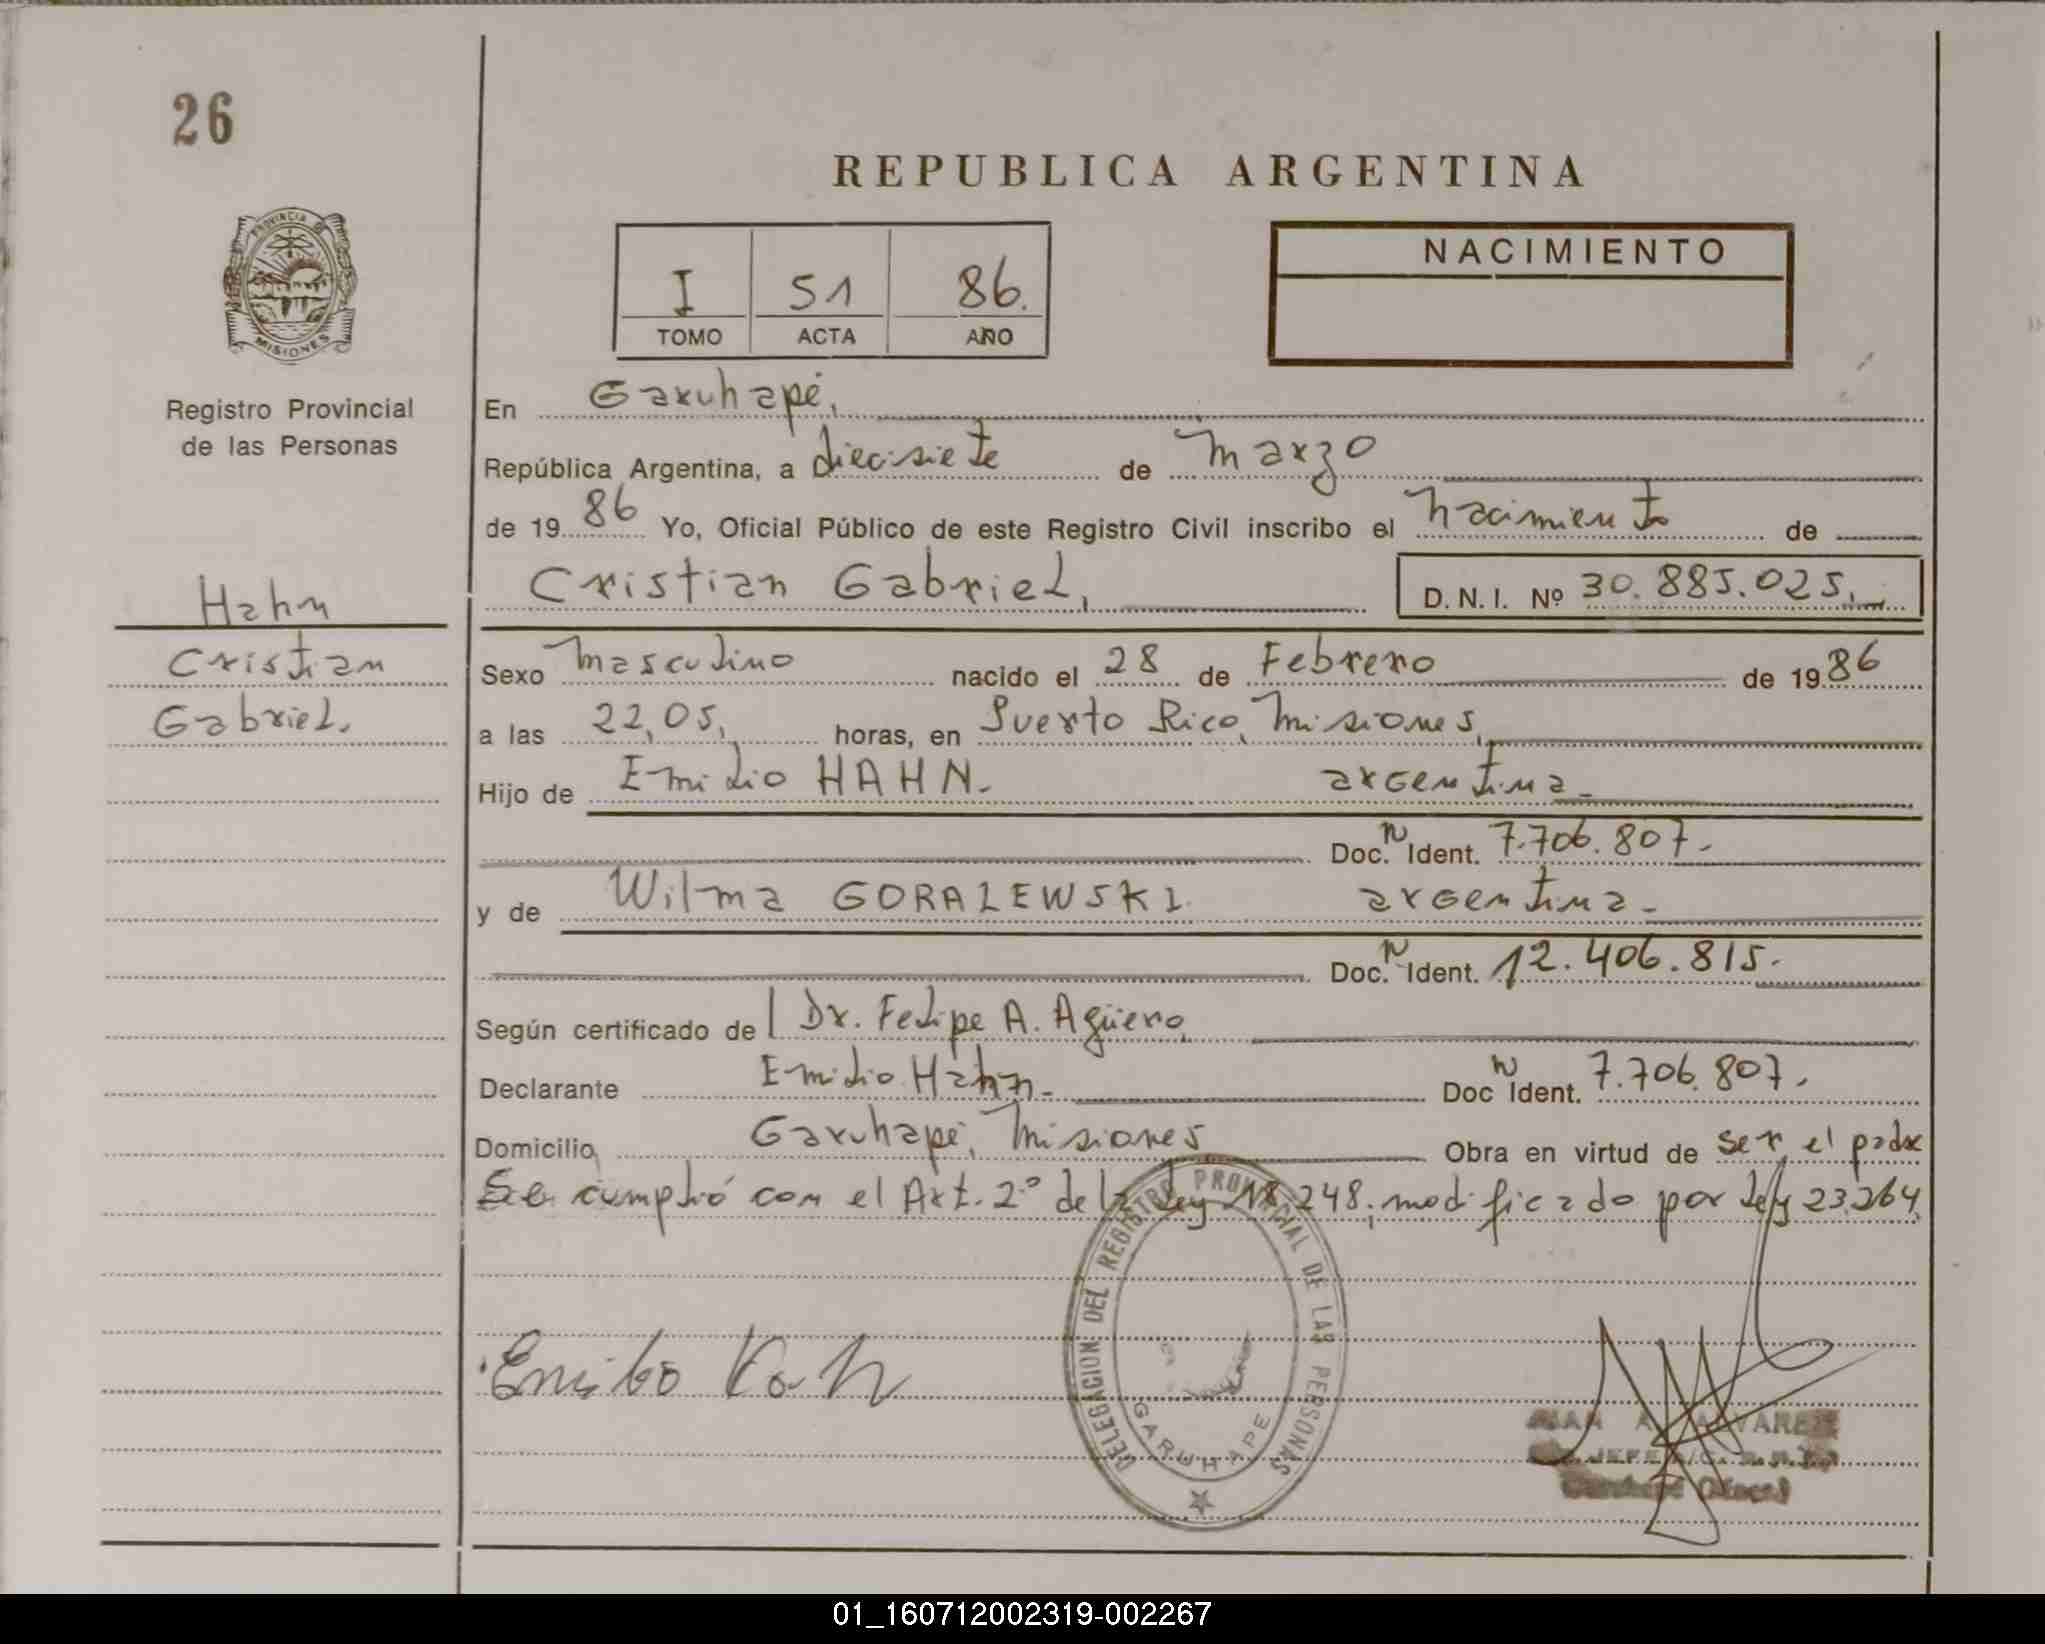 26
REPUBLICA ARGENTINA
PROVINCIA DE
MISIONES
Registro Provincial
de las Personas
I 51 86.
TOMO ACTA AÑO
NACIMIENTO
En Garuhapé,
República Argentina, a diecisiete de Marzo
de 1986 Yo, Oficial Público de este Registro Civil inscribo el nacimiento de
Cristian Gabriel, D.N.I. Nº 30.885.025,
Hahn
Cristian
Gabriel.
Sexo Masculino nacido el 28 de Febrero de 1986
a las 22,05, horas, en Puerto Rico, Misiones,
Hijo de Emilio HAHN. argentina
Doc. N Ident. 7.706.807.
y de Wilma GORALEWSKI. argentina
Doc. N Ident. 12.406.815.
Según certificado de l Dr. Felipe A. Agüero,
Declarante Emilio Hahn. Doc N Ident. 7.706.807.
Domicilio Garuhapé, Misiones Obra en virtud de ser el padre
Se cumplió con el Art. 2º de la Ley 18.248, modificado por Ley 23.264,
DELEGACION DEL REGISTRO PROVINCIAL DE LAS PERSONAS
GARUHAPE
JEFE
01_160712002319-002267